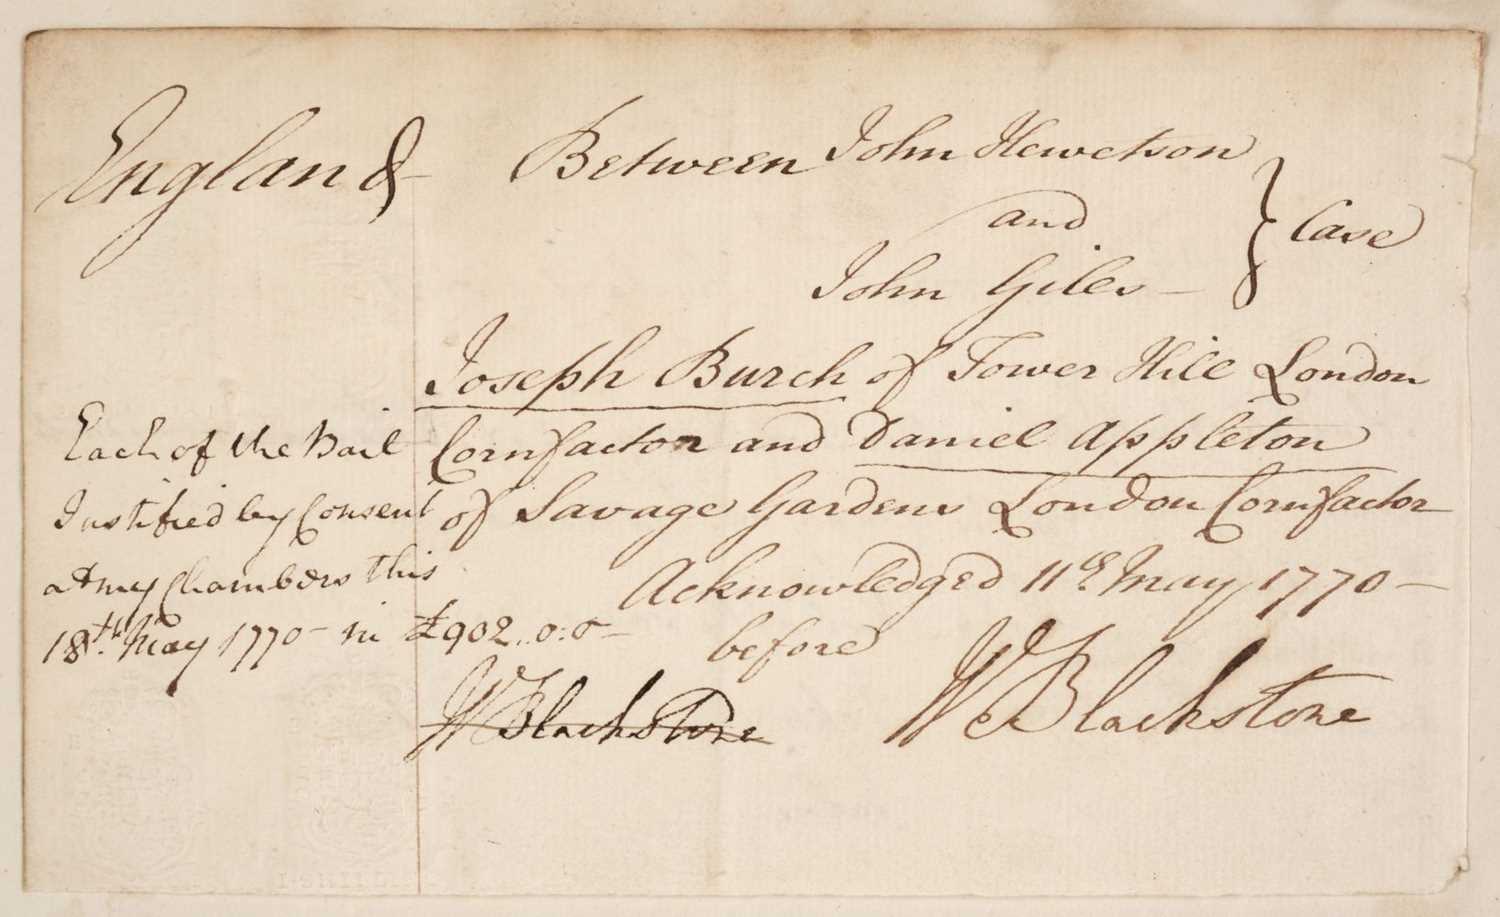 England
Between John Hewetson
and
John Giles —
} Case
Joseph Burch of Tower Hill London
Cornfactor and Daniel Appleton
of Savage Gardens London Cornfactor
Acknowledged 11th May 1770 —
before
Wm Blackstone
Each of the Bail
Justified by Consent
at my Chambers this
18th May 1770 — in £902..0:0 —
W Blackstone